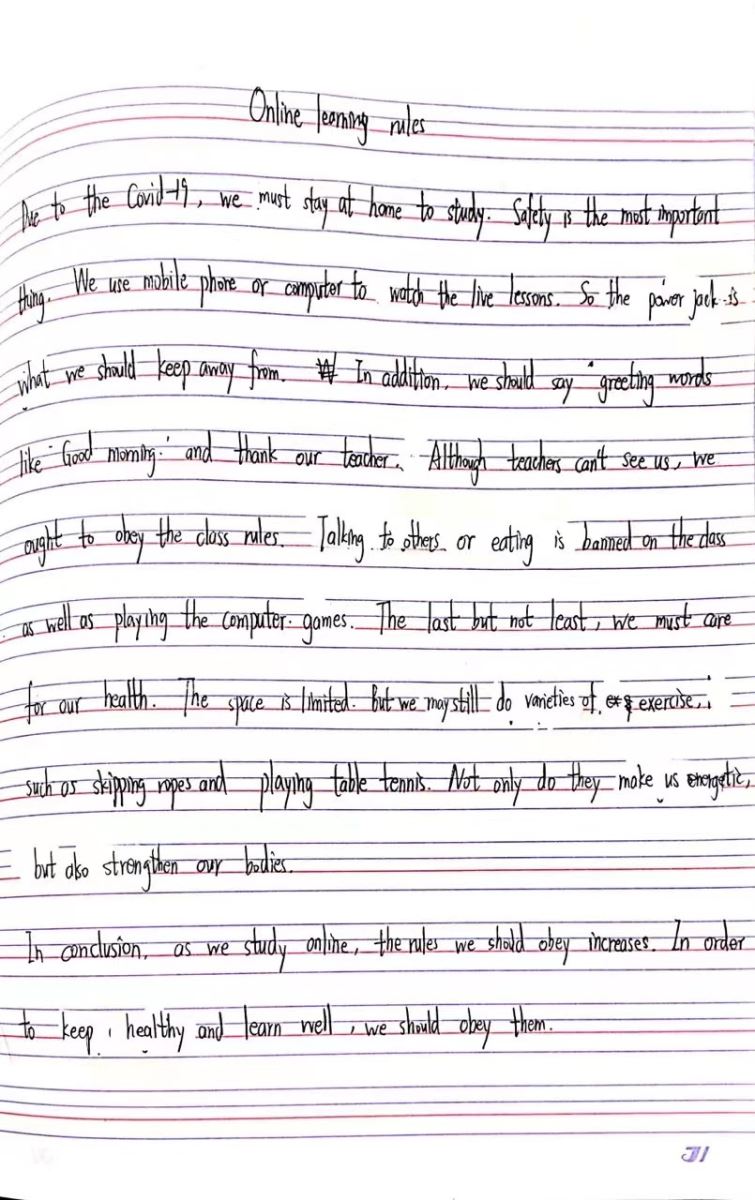 Online learning rules
Due to the Covid-19, we must stay at home to study. Safety is the most important
thing. We use mobile phone or computer to watch the live lessons. So the power jack is
what we should keep away from. In addition, we should say "greeting words
like "Good morning." and thank our teacher. Although teachers can't see us, we
ought to obey the class rules. Talking to others or eating is banned on the class
as well as playing the computer games. The last but not least, we must care
for our health. The space is limited. But we may still do varieties of exercise,
such as skipping ropes and playing table tennis. Not only do they make us energetic,
but also strengthen our bodies.
In conclusion, as we study online, the rules we should obey increases. In order
to keep healthy and learn well, we should obey them.
31